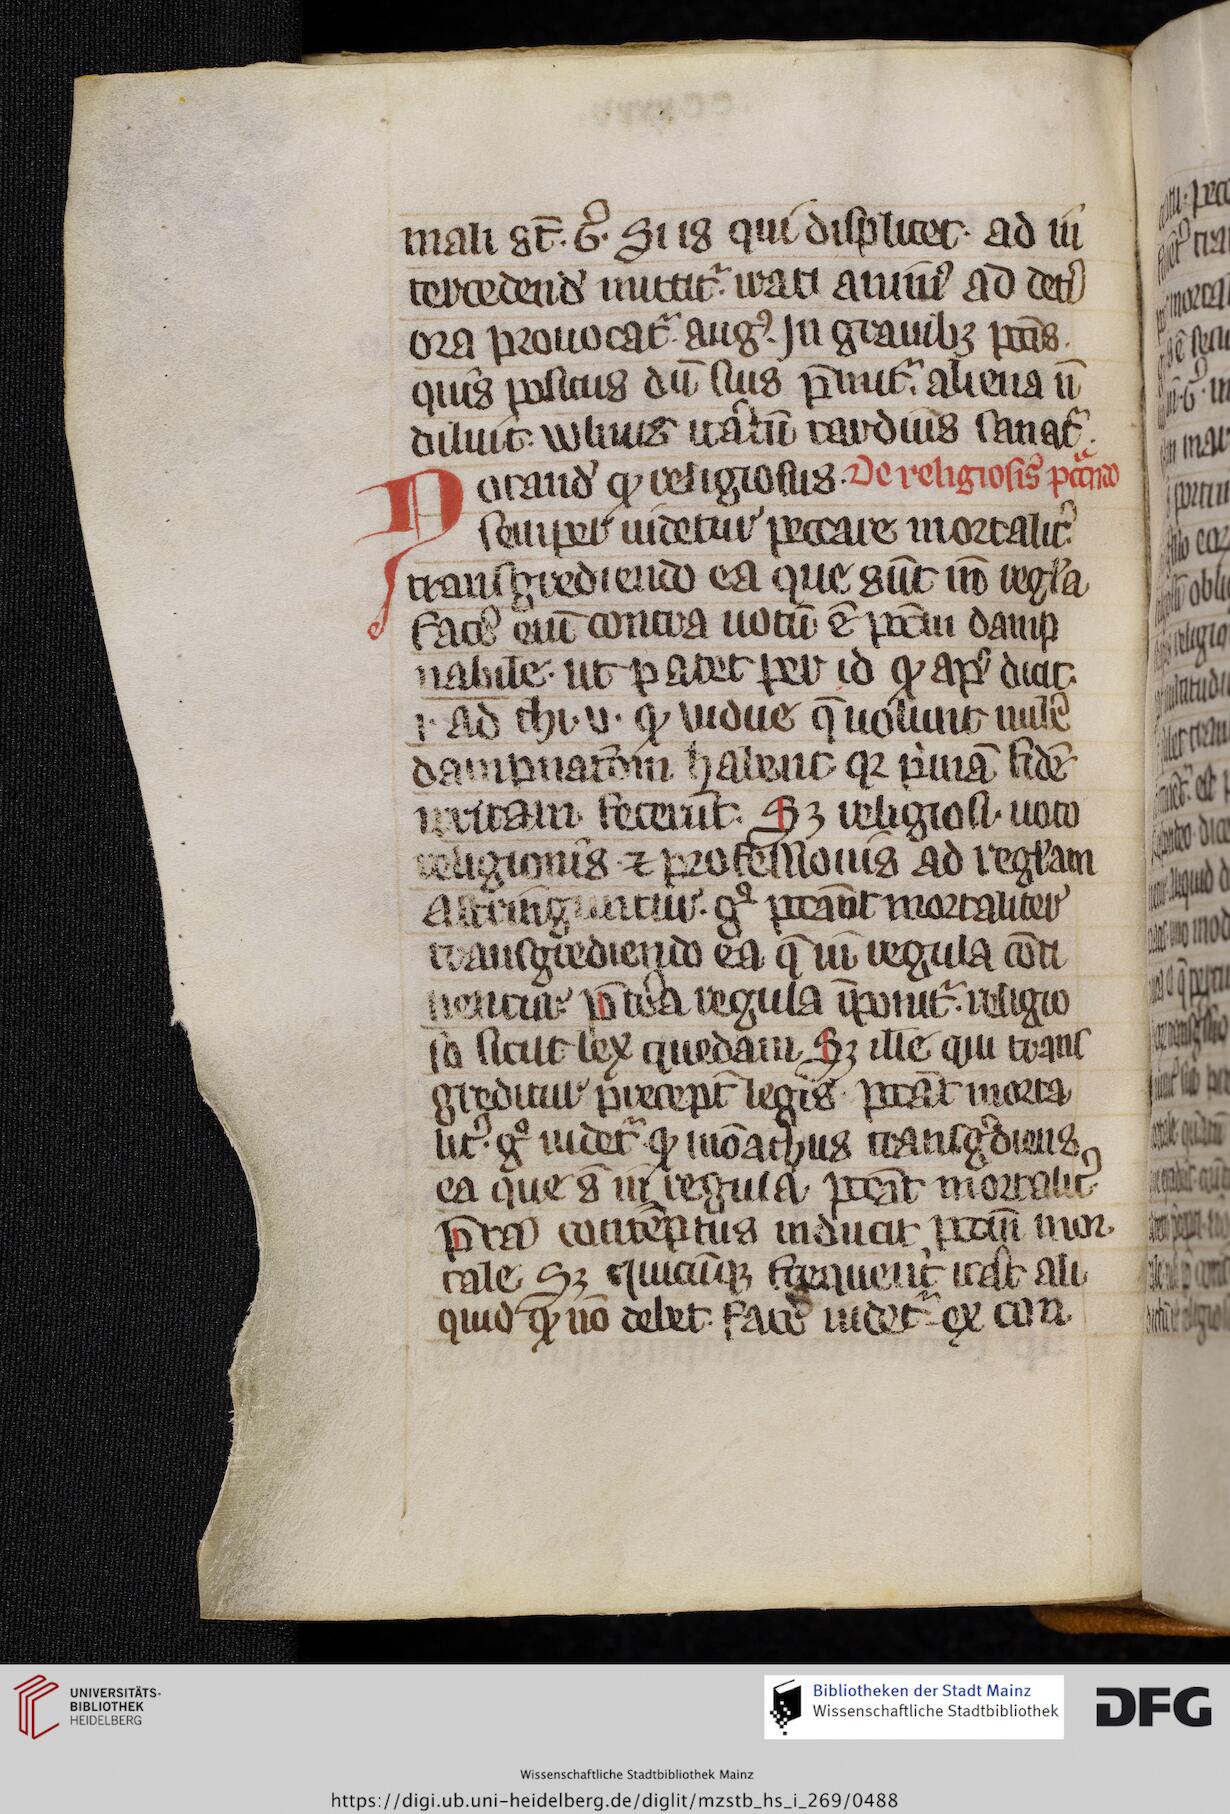 mali st̄. G̾. Si is qui displicet. ad in
tercedend̾ mittit᷑. irati animꝰ ad deti
ora prouocat᷑. augꝰ. In grauibꝫ pcc̄is.
quis positus dū suis p̄mit᷑. aliena n̄
diluit. wlnus itatū tardius sanat᷑.
Notand̾ ꝙ religiosus. De religiosis pcc̄ando
semper uidetur peccare mortalit̾.
transgrediendo ea que sūt in regl̄a
facē eni contra uotū ē pcc̄m damp
nabile. ut patet per id ꝙ apꝰ dicit.
i. ad thi. v. ꝙ uidue q̄ uolunt nube
dampnatōm habent qꝛ pimā fidē
irritam fecerūt. Sꝫ religiosi. uoto
religionis ⁊ professionis ad regl̄am
astringuntur. gͦ pccānt mortaliter
transgrediendo ea q̄ in regula cōti
nentur. p̄terea regula īponit᷑. religio
so sicut lex quedam. Sꝫ ille qui trans
greditur precept̄ legis. pccāt morta
lit̾. gͦ uidet᷑. ꝙ monachus transgrediens
ea que s̄ in regula. pccāt mortalit̾.
p̄rea contēptus inducit pcc̄m mor
tale. Sꝫ quicūqꝫ frequent̾ it̾at ali
quid ꝙ nō debet face̾. uidet᷑ ex con
UNIVERSITÄTS-
BIBLIOTHEK
HEIDELBERG
Bibliotheken der Stadt Mainz
Wissenschaftliche Stadtbibliothek
DFG
Wissenschaftliche Stadtbibliothek Mainz
https://digi.ub.uni-heidelberg.de/diglit/mzstb_hs_i_269/0488